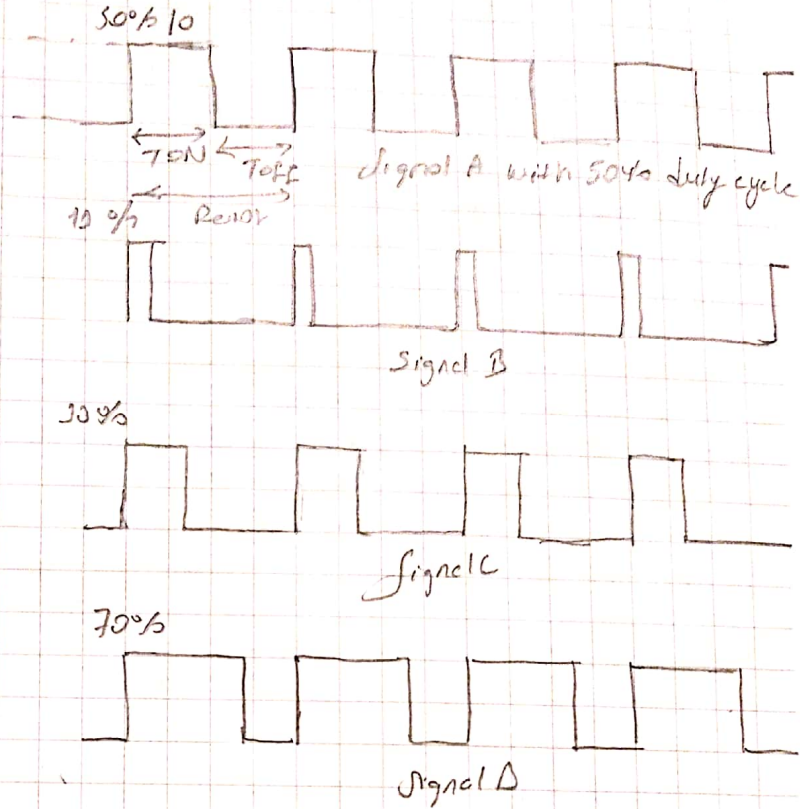 50%
TON
Toff
Signal A with 50% duty cycle
Signal B
Signal C
70%
Signal D